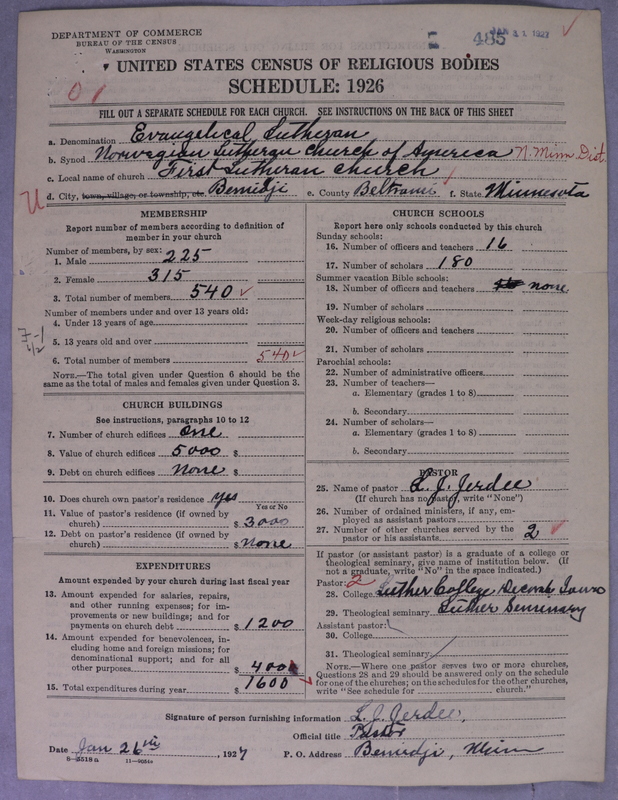 DEPARTMENT OF COMMERCE
BUREAU OF THE CENSUS
WASHINGTON
485
UNITED STATES CENSUS OF RELIGIOUS BODIES
SCHEDULE: 1926
FILL OUT A SEPARATE SCHEDULE FOR EACH CHURCH. SEE INSTRUCTIONS ON THE BACK OF THIS SHEET
a. Denomination Evangelical Lutheran
b. Synod Norwegian Lutheran Church of America N. Minn Dist.
c. Local name of church First Lutheran Church
d. City, town, village, or township, etc. Bemidji e. County Beltrami f. State Minnesota
MEMBERSHIP
Report number of members according to definition of
member in your church
Number of members, by sex:
1. Male 225
2. Female 315
3. Total number of members 540
Number of members under and over 13 years old:
4. Under 13 years of age
5. 13 years old and over
6. Total number of members 540
NOTE.—The total given under Question 6 should be
same as the total of males and females given under Question 3.
CHURCH BUILDINGS
See instructions, paragraphs 10 to 12
7. Number of church edifices one
8. Value of church edifices 5000 $
9. Debt on church edifices None $
10. Does church own pastor's residence yes
Yes or No
11. Value of pastor's residence (if owned by
church) $ 3000
12. Debt on pastor's residence (if owned by
church) $ None
EXPENDITURES
Amount expended by your church during last fiscal year
13. Amount expended for salaries, repairs,
and other running expenses; for im-
provements or new buildings; and for
payments on church debt $ 1200
14. Amount expended for benevolences, in-
cluding home and foreign missions; for
denominational support; and for all
other purposes $ 400
15. Total expenditures during year $ 1600
CHURCH SCHOOLS
Report here only schools conducted by this church
Sunday schools:
16. Number of officers and teachers 16
17. Number of scholars 180
Summer vacation Bible schools:
18. Number of officers and teachers none
19. Number of scholars
Week-day religious schools:
20. Number of officers and teachers
21. Number of scholars
Parochial schools:
22. Number of administrative officers
23. Number of teachers—
a. Elementary (grades 1 to 8)
b. Secondary
24. Number of scholars—
a. Elementary (grades 1 to 8)
b. Secondary
PASTOR
25. Name of pastor L. J. Jerdee
(If church has no pastor, write "None")
26. Number of ordained ministers, if any, em-
ployed as assistant pastors
27. Number of other churches served by the
pastor or his assistants 2
If pastor (or assistant pastor) is a graduate of a college or
theological seminary, give name of institution below. (If
not a graduate, write "No" in the space indicated.)
Pastor: 2
28. College Luther College Decorah Iowa
29. Theological seminary Luther Seminary
Assistant pastor:
30. College
31. Theological seminary
NOTE.—Where one pastor serves two or more churches,
Questions 28 and 29 should be answered only on the schedule
for one of the churches; on the schedules for the other churches,
write "See schedule for church."
Signature of person furnishing information L. J. Jerdee,
Official title Pastor
Date Jan 26th, 1927 P. O. Address Bemidji, Minn
8—5518 a 11—9051